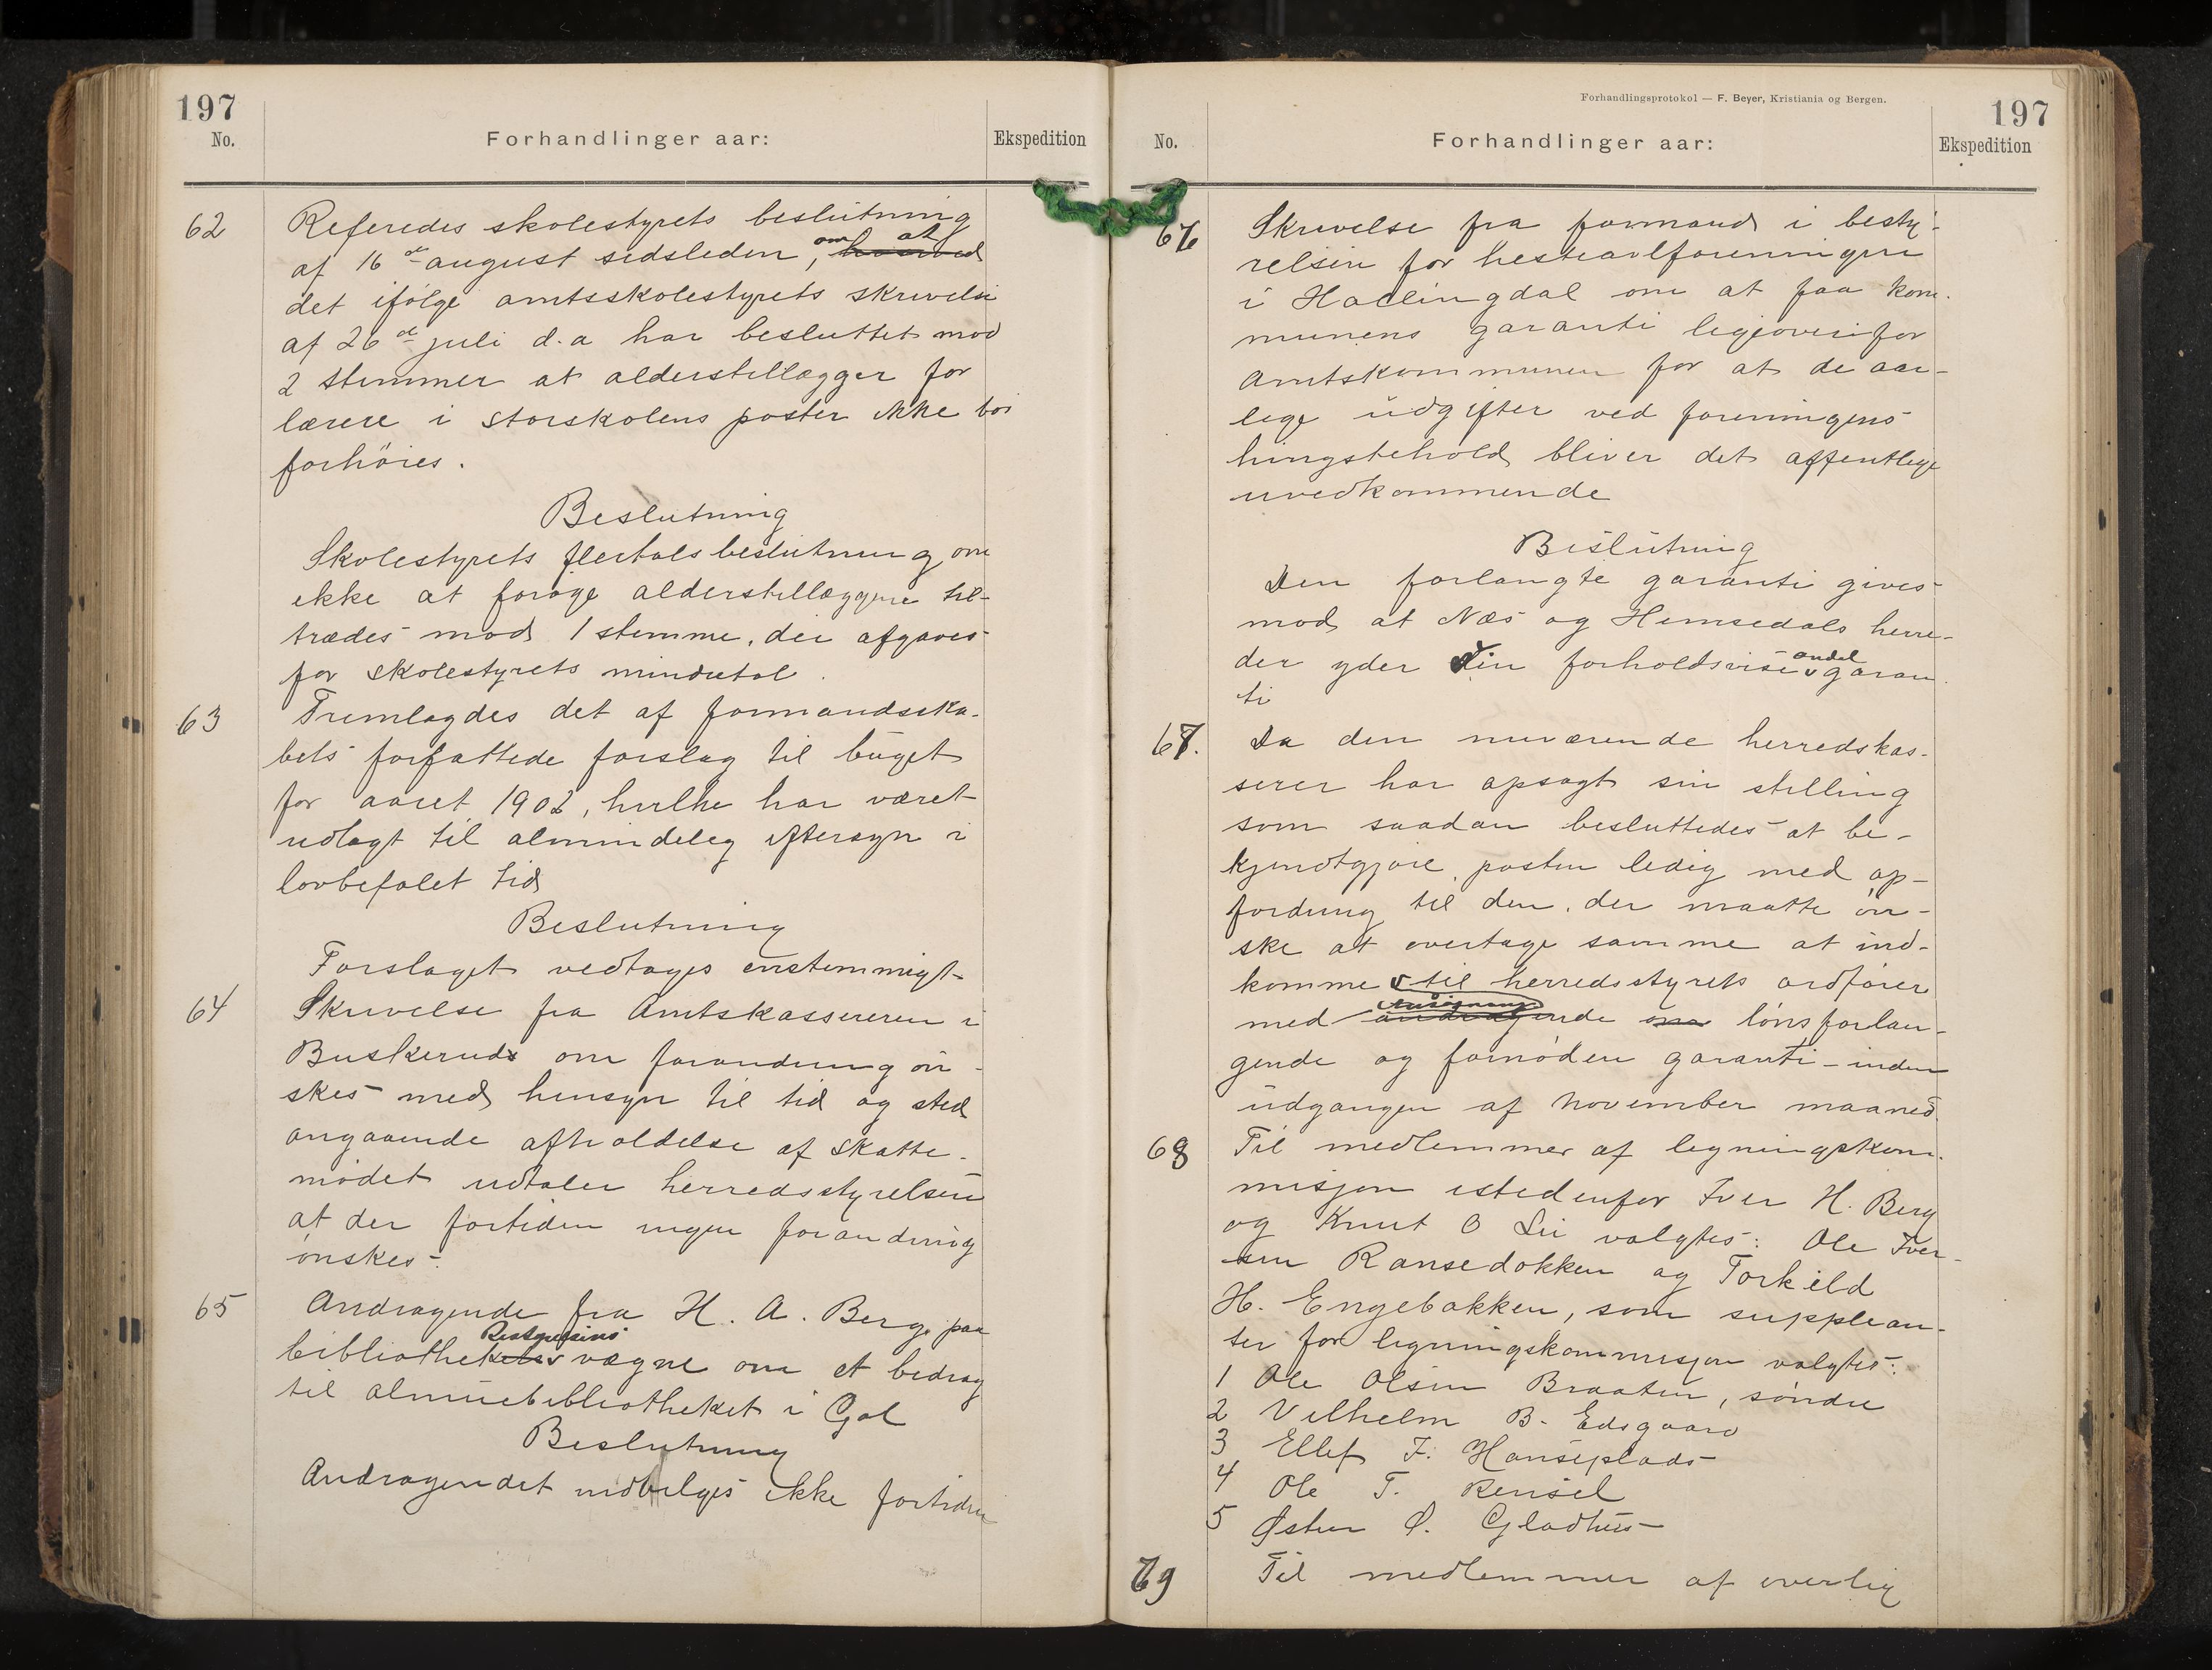 197
No.
Forhandlinger aar:
Ekspedition
62
Referedes skolestyrets beslutning
af 16de august sidsleden, om at hvorved
det ifölge amtsskolestyrets skrivelse
af 26de juli d.a har besluttet mod
2 stemmer at alderstillægger for
lærere i storskolens poster ikke bör
forhöies.
Beslutning
Skolestyrets flertalsbeslutning om
ikke at foröge alderstillæggene til-
trædes mod 1 stemme, der afgaves
for skolestyrets mindretal.
63
Fremlagdes det af formandsska-
bets forfattede forslag til buget
for aaret 1902, hvilke har været
udlagt til almindelig eftersyn i
lovbefalet tid
Beslutning
Forslaget vedtages enstemmigt
64
Skrivelse fra Amtskassereren i
Buskeruds om forandring ön-
skes med hensyn til tid og sted
angaaende afholdelse af skatte-
mödet udtaler herredsstyrelsen
at der fortiden ingen forandring
önskes.
65
Andragende fra H. A. Berg, paa
Bestyrelsens
bibliothekets vægne om et bedrag
til almuebibliotheket i Gol
Beslutning
Andragendet indvilges ikke fortiden
Forhandlingsprotokol — F. Beyer, Kristiania og Bergen.
197
No.
Forhandlinger aar:
Ekspedition
66
Skrivelse fra formand i besty-
relsen for hesteavlforeningen
i Hallingdal om at faa kom-
munens garanti ligeoverifor
Amtskommunen for at de aar-
lige udgifter ved foreningens
hingstehold bliver det offentlige
uvedkommende
Beslutning
Den forlangte garanti gives
mod at Næs og Hemsedals herre-
andel
der yder sin forholdsvise garan-
ti
67.
Da den nuværende herredskas-
serer har opsagt sin stilling
som saadan besluttedes at be-
kjendtgjöre posten ledig med op-
fordring til den, der maatte ön-
ske at overtage samme at ind-
komme til herredsstyrets ordförer
ansögning
med andragende om lönsforlan-
gende og fornöden garanti - inden
udgangen af november maaned.
68
Til medlemmer af ligningskom-
misjon istedenfor Iver H. Berg
og Knut O Lii valgtes: Ole Iver-
sen Ransedokken og Torkild
H. Engebakken, som supplean-
ter for ligningskommisjon valgtes:
1 Ole Olsen Braaten, söndre
2 Vilhelm B. Eidsgaard
3 Ellef I. Hanseplads
4 Ole T. Rensel
5 Østen O. Gladhus
69
Til medlemmer af overlig